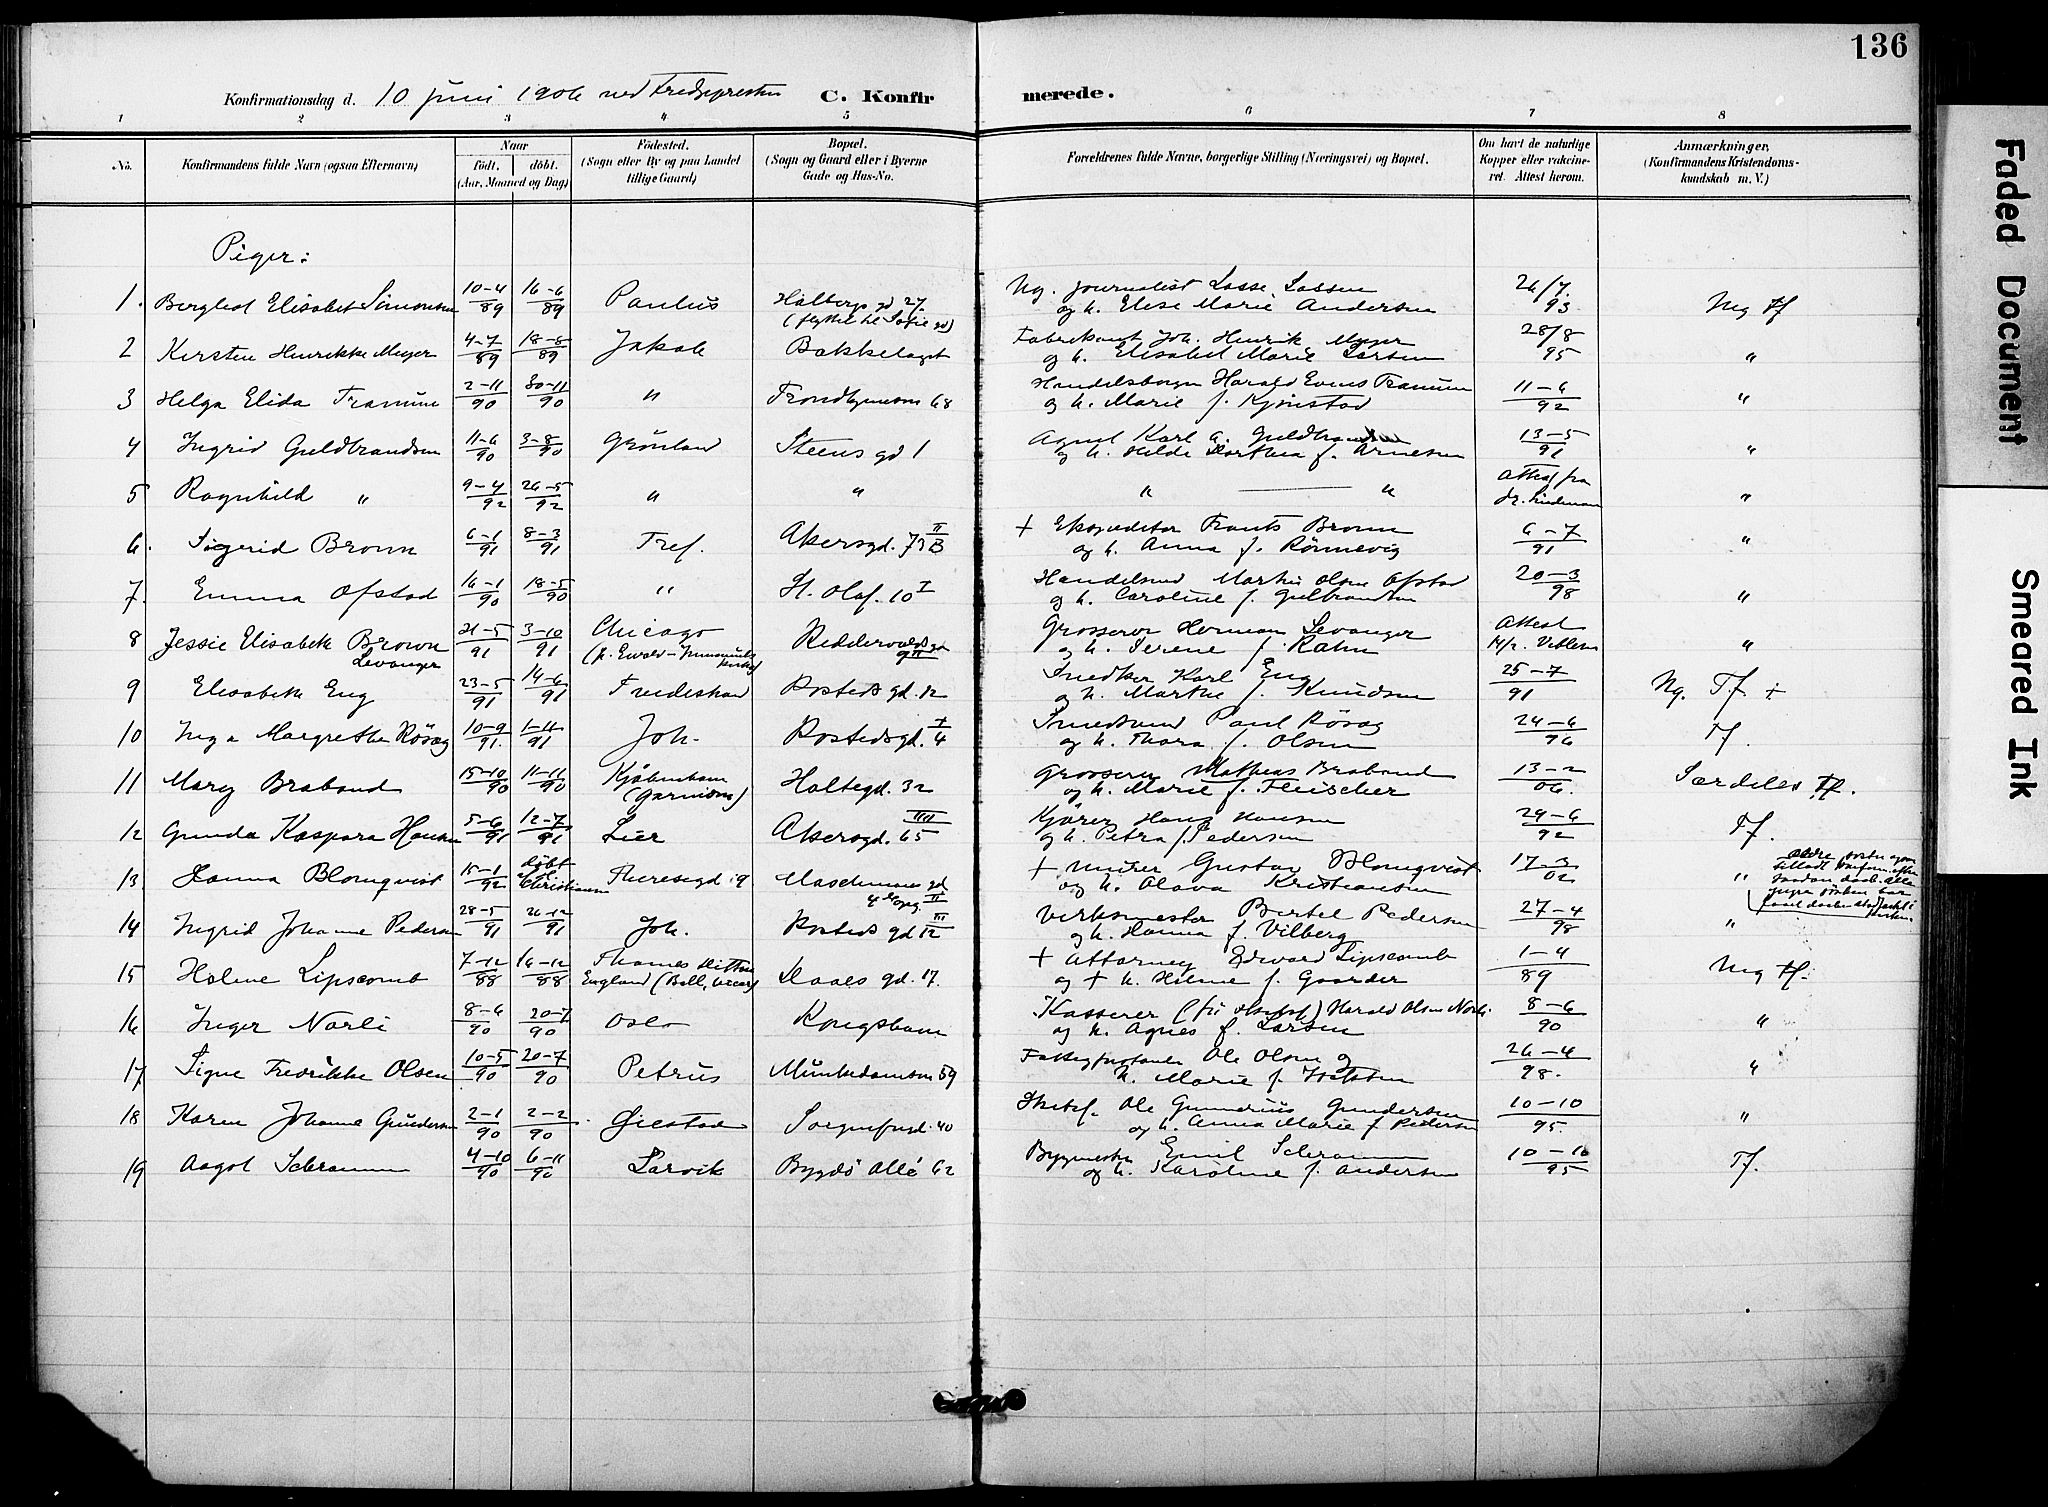 136
Konfirmationsdag d. 10 Juni 1906 ved C. Konfirmerede.
1 2 3 4 5 6 7 8
No. Konfirmandens fulde Navn (ogsaa Efternavn) Naar födt, döbt. (Aar, Maaned og Dag) Födested. (Sogn eller By og paa Landet tillige Gaard) Bopæl. (Sogn og Gaard eller i Byerne Gade og Hus-No. Forældrenes fulde Navne, borgerlige Stilling (Næringsvei) og Bopæl. Om havt de naturlige Kopper eller vaccineret. Attest herom. Anmærkninger, (Konfirmandens Kristendomskundskab m. V.)
Piger:
1. Bergliot Elisabet Simonsen 10-4/89 16-6/89 Paulus 27. (flyttet til Sofie gd) Ng. journalist Lasse og h. Elise Marie Andersen 26/7. 93 Mg Tf
2 Kirsten Henrikke Meyer 4-7/89 18-8/89 Jakob Bakkelaget Fabrikant Joh. Henrik Meyer og h. Elisabet Marie Larsen 28/8 95 "
3 Helga Elida 2-11/90 30-11/90 " 68 Harald og h. Marie f. Kjönstad 11-6/92 "
4 Ingrid Guldbrandsen 11-6/90 3-8/90 Grönland Steens gd 1 Agent Karl G. Guldbrandsen og h. Hilda Dorthea f. Arnesen 13-5/91 "
5 Ragnhild " 9-4/92 26-5/92 " " " — " Attest fra dr. "
6. Sigrid Brown 6-1/91 8-3/91 Tref. Akersgd. 73 B II + Ekspeditør Frants Brown og h. Anna f. Rönnevig 6-7/91 "
7. Emma Ofstad 16-1/90 18-5/90 " St. Olaf. 10 I Martin Olsen Ofstad og h. Caroline f. Gulbrandsen 20-3/98 "
8 Jessie Elisabeth Brown Levanger 31-5/91 3-10/91 Chicago Grosserer Herman Levanger og h. Serene f. Rahn Attest "
9 Elisabeth Eng 23-5/91 14-6/91 Rosteds gd. 12 Snedker Karl Eng og h. Marthe f. Knudsen 25-7/91 Ng. Tf +
10 Inga Margrethe Rösæg 10-9/91. 1-11/91 Joh. Rostedsgd. 4 I Paul Rösæg og h. Thora f. Olsen 24-6/96 Tf.
11 Mary Braband 15-10/90 11-11/90 Kjöbenhavn (Garnisons) Holtegd. 32 Grosserer Mathias Braband og h. Marie f. Fleischer 13-2/06. Særdeles Tf.
12 Gunda Kaspara Hansen 5-6/91 12-7/91 Lier Akersgd. 65 IIII Kjörer Hans Hansen og h. Petra f. Pedersen 29-6/92 Tf.
13 Hanna Blomqvist 15-1/92 döbt Theresegd. 9 4 II + murer Gustav Blomqvist og h. Olava Kristiansen 17-3/02 "
14 Ingrid Johanne Pedersen 28-5/91 26-12/91 Joh. Rosteds gd 12 III Verksmester Bertel Pedersen og h. Hanna f. Vilberg 27-4/98 "
15 Helene Lipscomb 7-12/88 16-12/88 Thames Ditton England Daas gd. 17. + Attorney Edward Lipscomb og + h. Helene f. Gaarder 1-4/89 Mg Tf.
16 Inger Narli 8-6/90 20-7/90 Oslo Kongshavn Kasserer Harald Olsen og h. Agnes f. Larsen 8-6/90 "
17 Signe Fredrikke Olsen 10-5/90 20-7/90 Petrus Munkedamsvn 59 Ole Olsen og h. Marie f. 26-4/98. "
18 Karen Johanne Gundersen 2-1/90 2-2/90 Öiestad Sorgenfrigd. 40 Skibsf. Ole Gundersen og h. Anna Marie f. Pedersen 10-10/95. "
19 Aagot Schramm 4-10/90 6-11/90 Larvik Bygdö Allé 62 Bygmester Emil Schramm og h. Karoline f. Andersen 10-10/95 Tf.
Faded Document
Smeared Ink